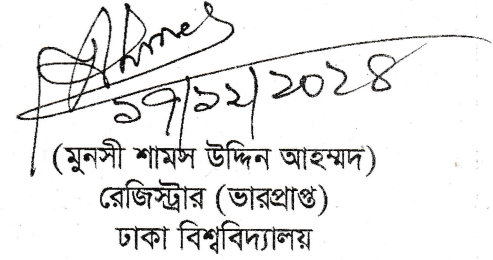 Ahmed
১৭/১২/২০২৪
(মুনসী শামস উদ্দিন আহম্মদ)
রেজিস্ট্রার (ভারপ্রাপ্ত)
ঢাকা বিশ্ববিদ্যালয়